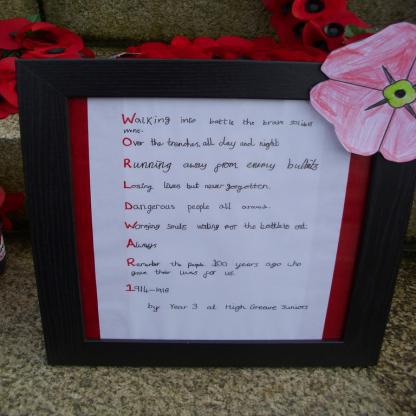 Walking into battle the brave soldiers
went.
Over the trenches, all day and night
Running away from enemy bullets
Losing lives but never forgotten.
Dangerous people all around.
Worrying souls waiting for the battle to end.
Always
Remember the people 100 years ago who
gave their lives for us.
1914-1918
by Year 3 at High Greave Juniors